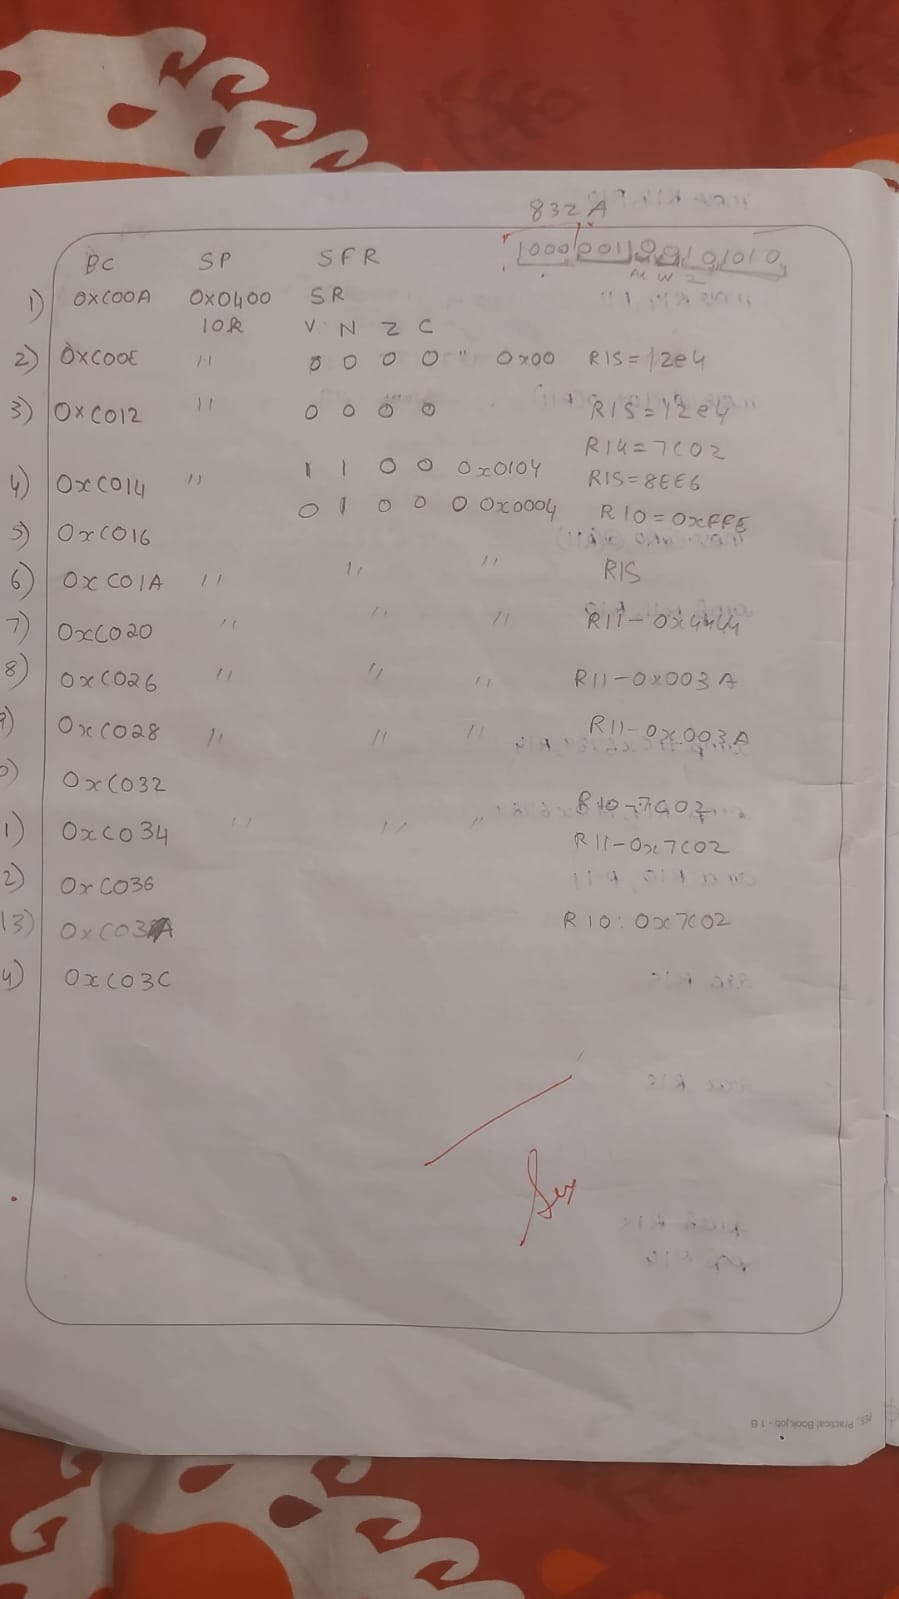 832A
1000001100101010
M W Z
PC SP SFR
1) 0xC00A 0x0400 SR
10R V N Z C
2) 0xC00E " 0 0 0 0 " 0x00 R15=12e4
3) 0xC012 " 0 0 0 0 R15=12e4
R14=7C02
4) 0xC014 " 1 1 0 0 0x0104 R15=8EE6
0 1 0 0 0 0x0004 R10=0xFFE
5) 0xC016
6) 0xC01A " " " R15
7) 0xC020 " " " R11-0x4444
8) 0xC026 " " " R11-0x003A
9) 0xC028 " " " R11-0x003A
0) 0xC032
R10-7C02
1) 0xC034 " " " R11-0x7C02
2) 0xC036
13) 0xC03A R10:0x7C02
4) 0xC03C
Practical Book job - 1 B